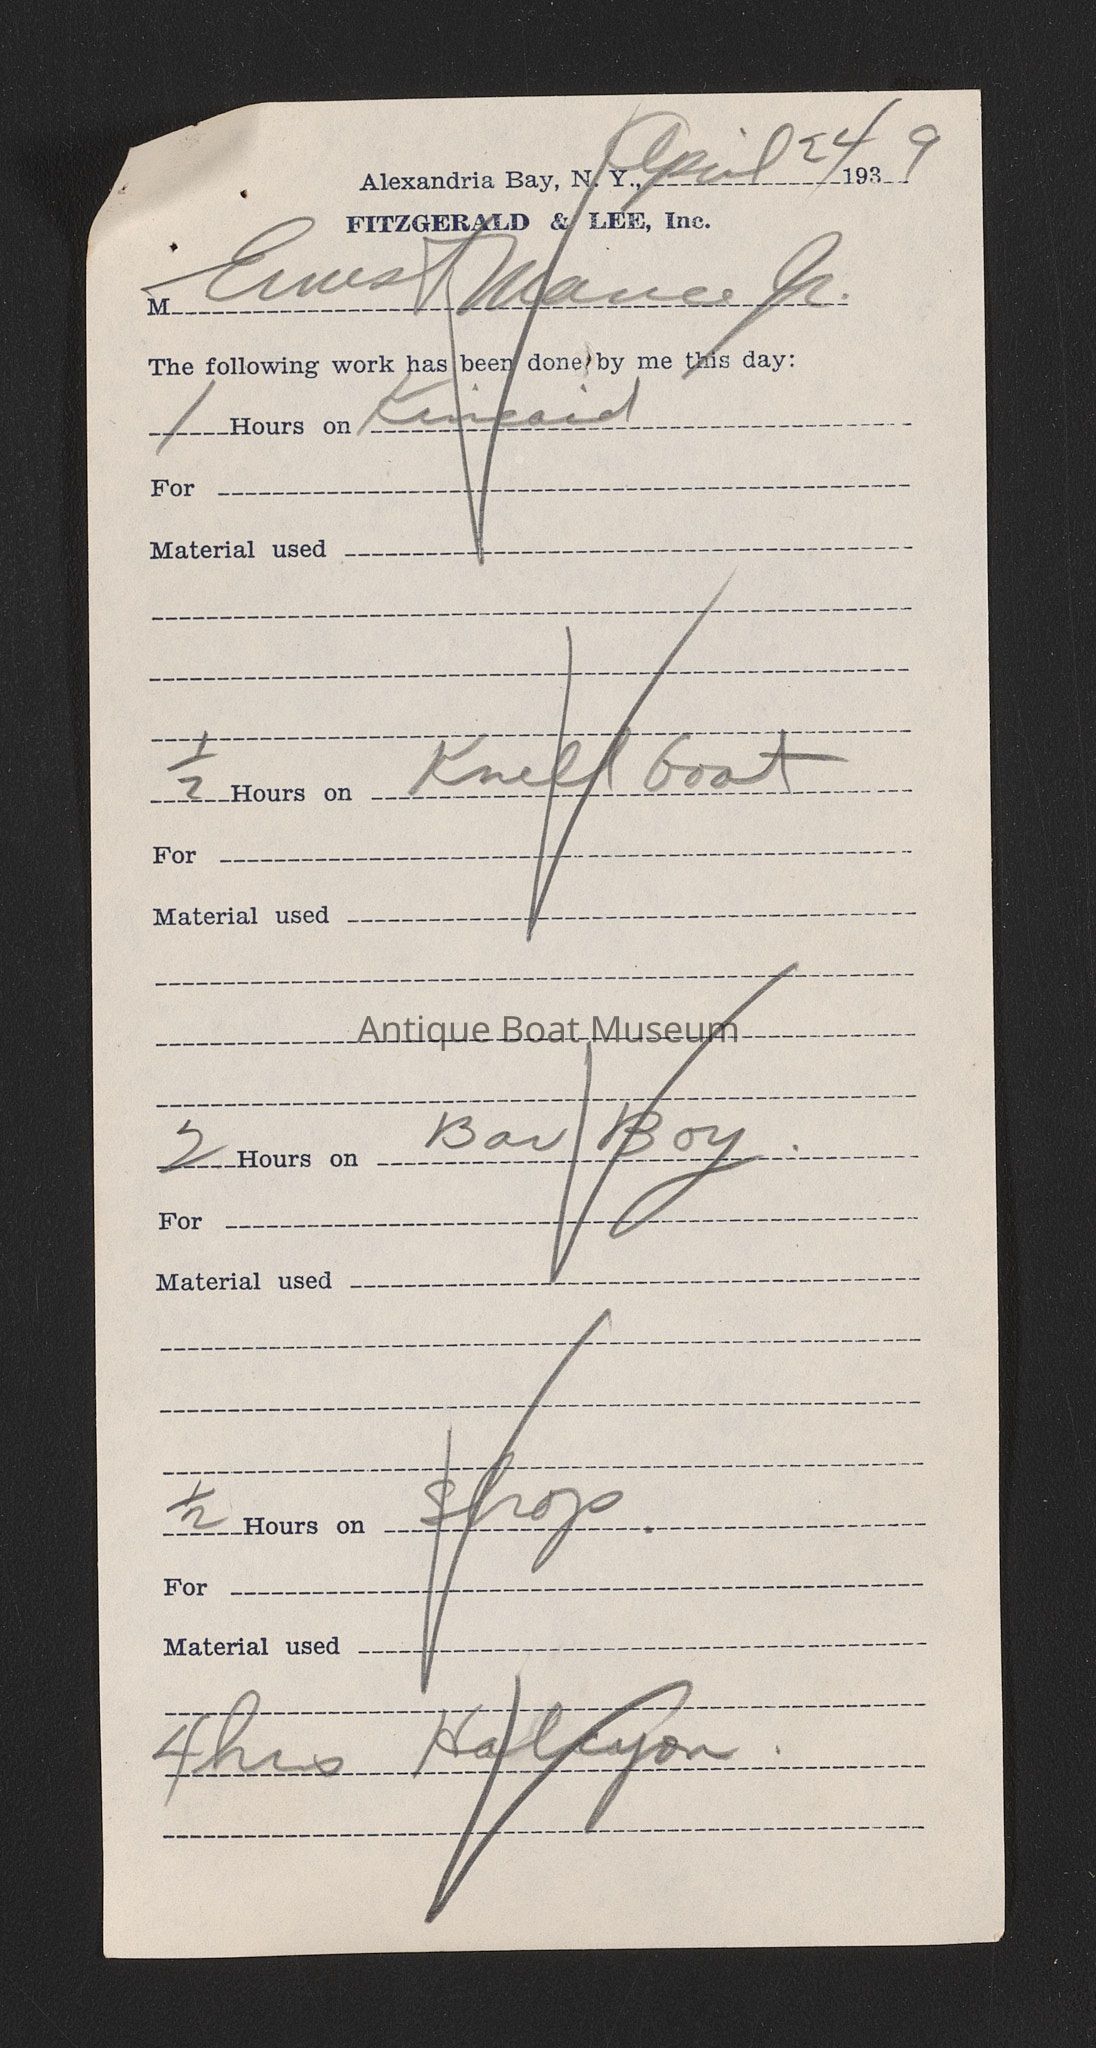 Alexandria Bay, N. Y., April 24 1939
FITZGERALD & LEE, Inc.
M Ernest Mance Jr.
The following work has been done by me this day:
1 Hours on Kincaid
For
Material used
1/2 Hours on Knell boat
For
Material used
Antique Boat Museum
2 Hours on Bav Boy.
For
Material used
1/2 Hours on Shop.
For
Material used
4 hrs Halcyon.